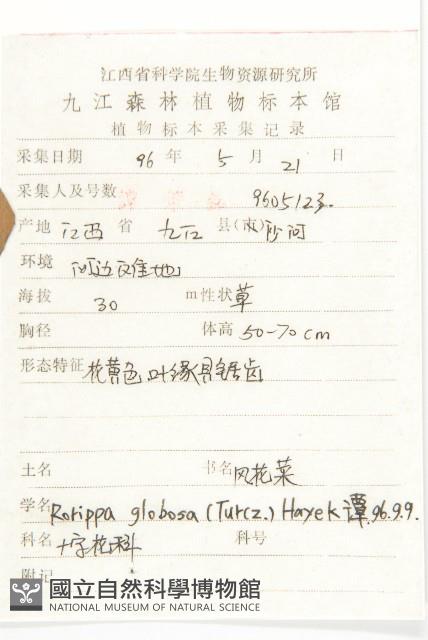 江西省科学院生物资源研究所
九江森林植物标本馆
植物标本采集记录
采集日期 96 年 5 月 21 日
采集人及号数 9605123.
产地 江西 省 九江 县(市) 沙河
环境 河边滩地
海拔 30 m 性状 草
胸径 体高 50-70 cm
形态特征 花黄色,叶缘具锯齿
土名 书名 风花菜
学名 Rorippa globosa (Turcz.) Hayek 谭.96.9.9.
科名 十字花科 科号
附记
國立自然科學博物館
NATIONAL MUSEUM OF NATURAL SCIENCE